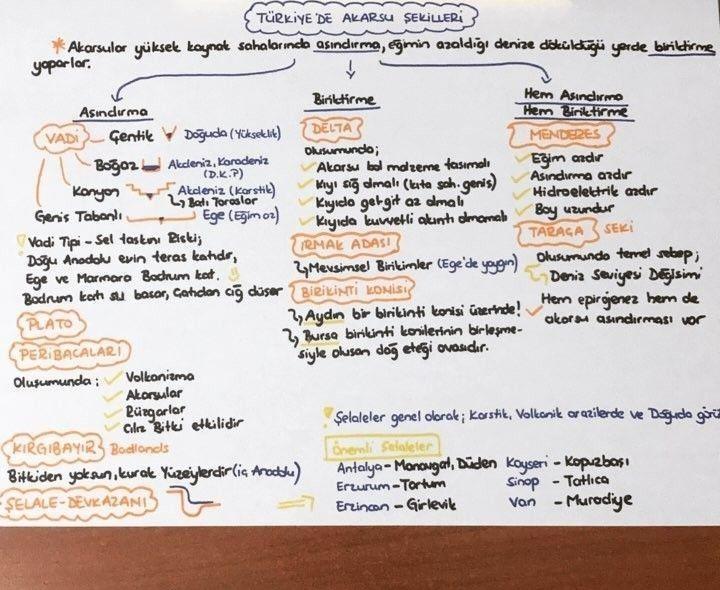 TÜRKİYE'DE AKARSU ŞEKİLLERİ
* Akarsular yüksek kaynak sahalarında aşındırma, eğimin azaldığı denize döküldüğü yerde biriktirme
yaparlar.
Aşındırma
VADİ
Çentik Doğuda (Yükseklik)
Boğaz Akdeniz, Karadeniz
(D.K.P)
Kanyon Akdeniz (Karstik)
Batı Toroslar
Geniş Tabanlı Ege (Eğim az)
! Vadi Tipi - Sel taşkını Riski;
Doğu Anadolu evin teras katıdır,
Ege ve Marmara Bodrum kat.
Bodrum katı su basar, Çatıdan çığ düşer
PLATO
PERİBACALARI
Oluşumunda; Volkanizma
Akarsular
Rüzgarlar
Cılız Bitki etkilidir
KIRGIBAYIR Badlands
Bitkiden yoksun, kurak Yüzeylerdir (iç Anadolu)
ŞELALE-DEVKAZANI
Biriktirme
DELTA
Oluşumunda;
Akarsu bol malzeme taşımalı
Kıyı sığ olmalı (kıta sah. geniş)
Kıyıda gel-git az olmalı
Kıyıda kuvvetli akıntı olmamalı
IRMAK ADASI
Mevsimsel Birikimler (Ege'de yaygın)
BİRİKİNTİ KONİSİ
Aydın bir birikinti konisi üzerinde!
Bursa birikinti konilerinin birleşme-
siyle oluşan dağ eteği ovasıdır.
Hem Aşındırma
Hem Biriktirme
MENDERES
Eğim azdır
Aşındırma azdır
Hidroelektrik azdır
Boy uzundur
TARAÇA SEKİ
Oluşumunda temel sebep;
Deniz Seviyesi Değişimi
Hem epirojenez hem de
akarsu aşındırması var
! Şelaleler genel olarak; Karstik, Volkanik arazilerde ve Doğuda
Önemli Şelaleler
Antalya - Manavgat, Düden
Erzurum - Tortum
Erzincan - Girlevik
Kayseri - Kapuzbaşı
Sinop - Tatlıca
Van - Muradiye